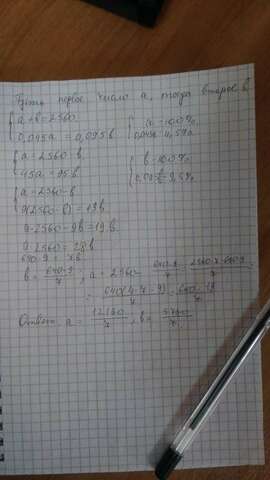 Пусть первое число a, тогда второе b.
{ a+b=2560
0,045a = 0,095b
{ a-100%
0,045a-4,5%
{ a=2560-b
45a=95b
{ b-100%
0,095b-9,5%
{ a=2560-b
9(2560-b)=19b
9·2560-9b=19b
9·2560=28b
640·9=7b
b=640·9/7; a=2560-640·9/7=2560·7-640·9/7=
=640(4·7-9)/7=640·19/7
Ответ: a=12160/7, b=5760/7.